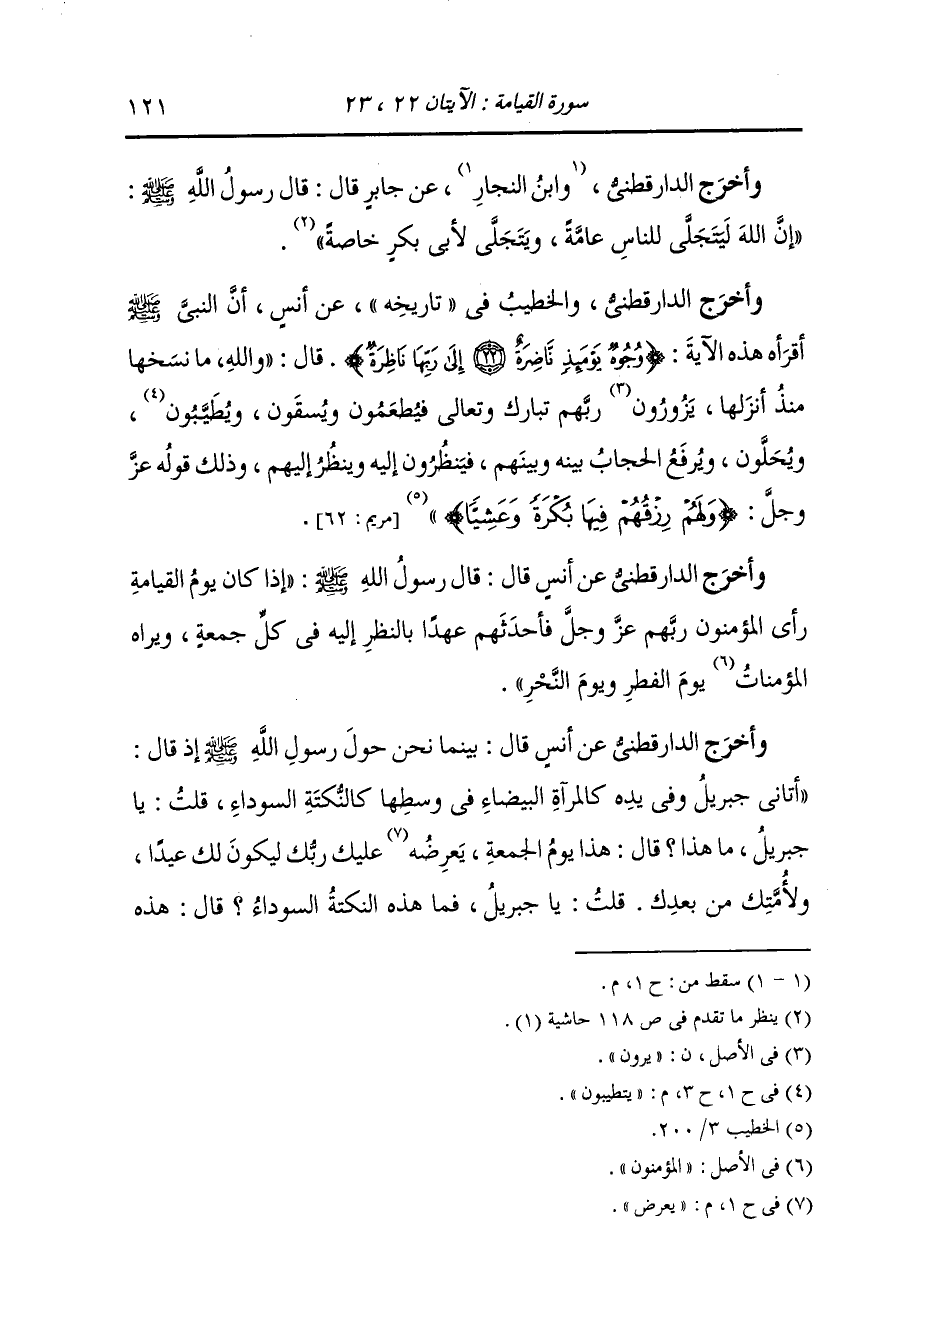 سورة القيامة : الآيتان ٢٢ ، ٢٣ ١٢١
وأخرَج الدارقطنىُّ ، (١وابنُ النجارِ١) ، عن جابرٍ قال : قال رسولُ اللَّهِ ﷺ :
«إنَّ اللهَ لَيَتَجَلَّى للناسِ عامَّةً ، ويَتَجَلَّى لأبى بكرٍ خاصةً»(٢) .
وأخرَج الدارقطنىُّ ، والخطيبُ فى « تاريخِه » ، عن أنسٍ ، أنَّ النبىَّ ﷺ
أقرَأه هذه الآيةَ : ﴿وُجُوهٌ يَوْمَئِذٍ نَّاضِرَةٌ ٢٢ إِلَىٰ رَبِّهَا نَاظِرَةٌ﴾ . قال : «واللهِ، ما نسَخها
منذُ أنزَلها ، يَزُورُون(٣) ربَّهم تبارك وتعالى فيُطعَمُون ويُسقَون ، ويُطَيَّبُون(٤) ،
ويُحَلَّون ، ويُرفَعُ الحجابُ بينه وبينَهم ، فيَنظُرُون إليه وينظُرُ إليهم ، وذلك قولُه عزَّ
وجلَّ : ﴿وَلَهُمْ رِزْقُهُمْ فِيهَا بُكْرَةً وَعَشِيًّا﴾ »(٥) [مريم : ٦٢] .
وأخرَج الدارقطنىُّ عن أنسٍ قال : قال رسولُ اللهِ ﷺ : «إذا كان يومُ القيامةِ
رأى المؤمنون ربَّهم عزَّ وجلَّ فأحدَثَهم عهدًا بالنظرِ إليه فى كلِّ جمعةٍ ، ويراه
المؤمناتُ(٦) يومَ الفطرِ ويومَ النَّحْرِ» .
وأخرَج الدارقطنىُّ عن أنسٍ قال : بينما نحن حولَ رسولِ اللَّهِ ﷺ إذ قال :
«أتانى جبريلُ وفى يدِه كالمرآةِ البيضاءِ فى وسطِها كالنُّكتَةِ السوداءِ ، قلتُ : يا
جبريلُ ، ما هذا ؟ قال : هذا يومُ الجمعةِ ، يَعرِضُه(٧) عليك ربُّك ليكونَ لك عيدًا ،
ولأُمَّتِك من بعدِك . قلتُ : يا جبريلُ ، فما هذه النكتةُ السوداءُ ؟ قال : هذه
(١ - ١) سقط من : ح ١، م .
(٢) ينظر ما تقدم فى ص ١١٨ حاشية (١) .
(٣) فى الأصل ، ن : « يرون » .
(٤) فى ح ١، ح ٣، م : « يتطيبون » .
(٥) الخطيب ٣/ ٢٠٠.
(٦) فى الأصل : « المؤمنون » .
(٧) فى ح ١، م : « يعرض » .